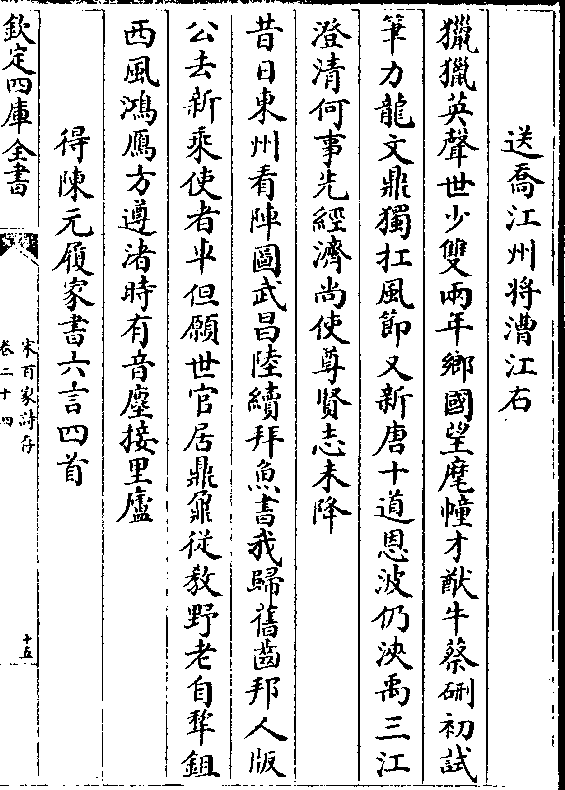 送喬江州将漕江右
獵獵英聲世少雙兩年鄉國望麾幢才猷牛蔡硎初試
筆力龍文鼎獨扛風節又新唐十道恩波仍泱禹三江
澄清何事先經濟尚使尊賢志未降
昔日東州看陣圖武昌陸續拜魚書我歸舊齒邦人版
公去新乘使者車但願世官居鼎鼐從教野老自犂鉏
西風鴻鴈方遵渚時有音塵接里廬
得陳元履家書六言四首
欽定四庫全書
宋百家詩存
卷二十四
十五